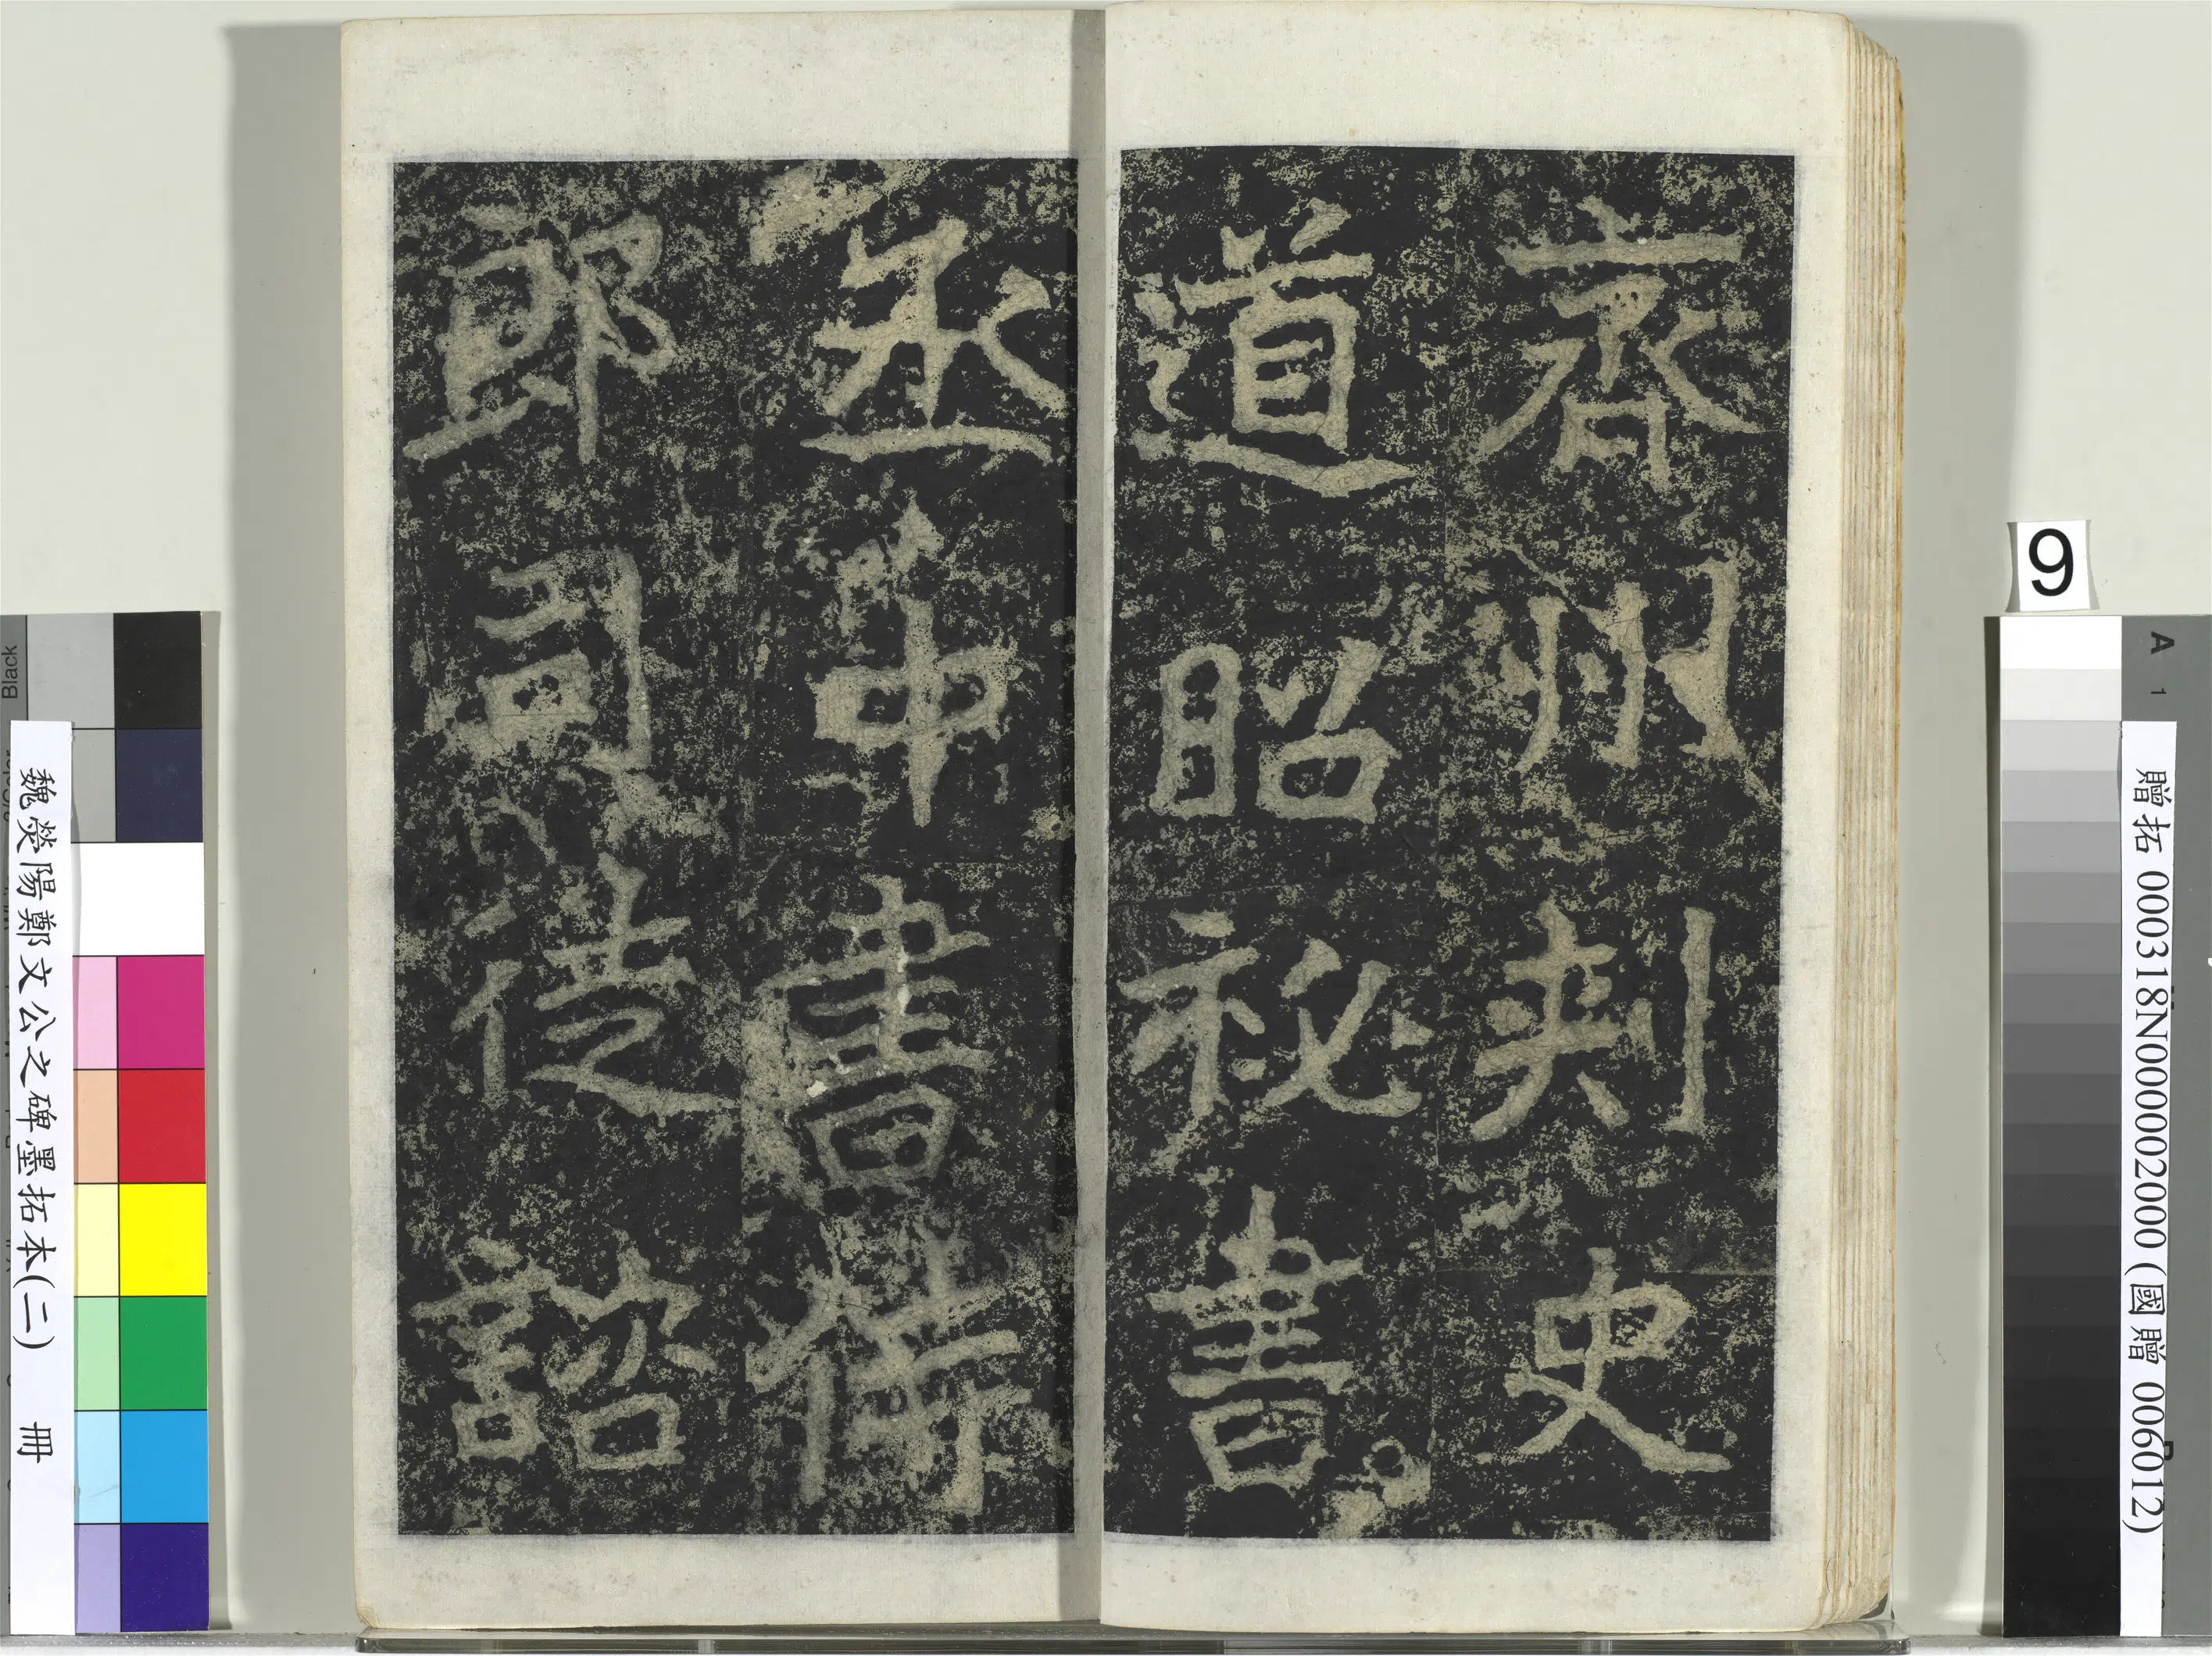 齊州刺史
道昭秘書
丞中書侍
郎司徒諮
9
贈拓 000318N000002000 (國贈 006012)
魏滎陽鄭文公之碑墨拓本(二) 冊
Black
A
1